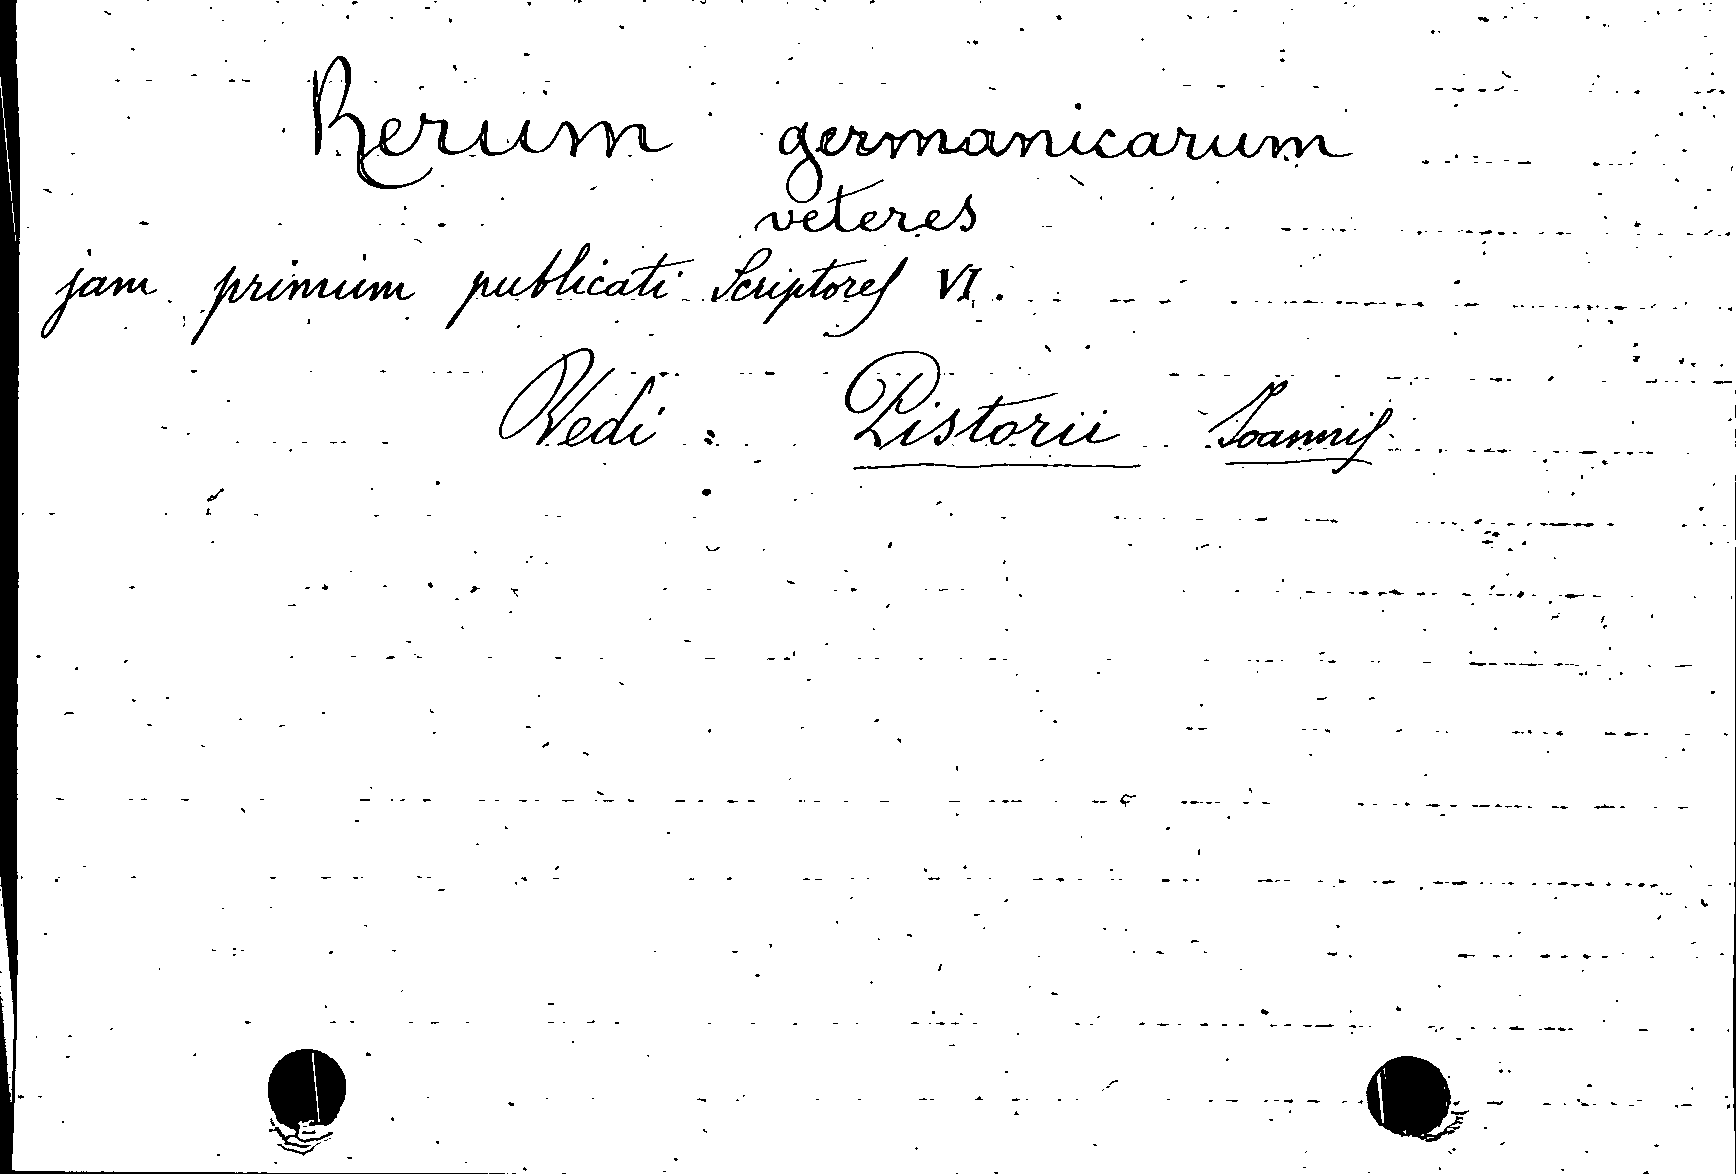 Rerum germanicarum
veteres
jam primum publicati Scriptores VI.
Vedi: Pistorii Joannis